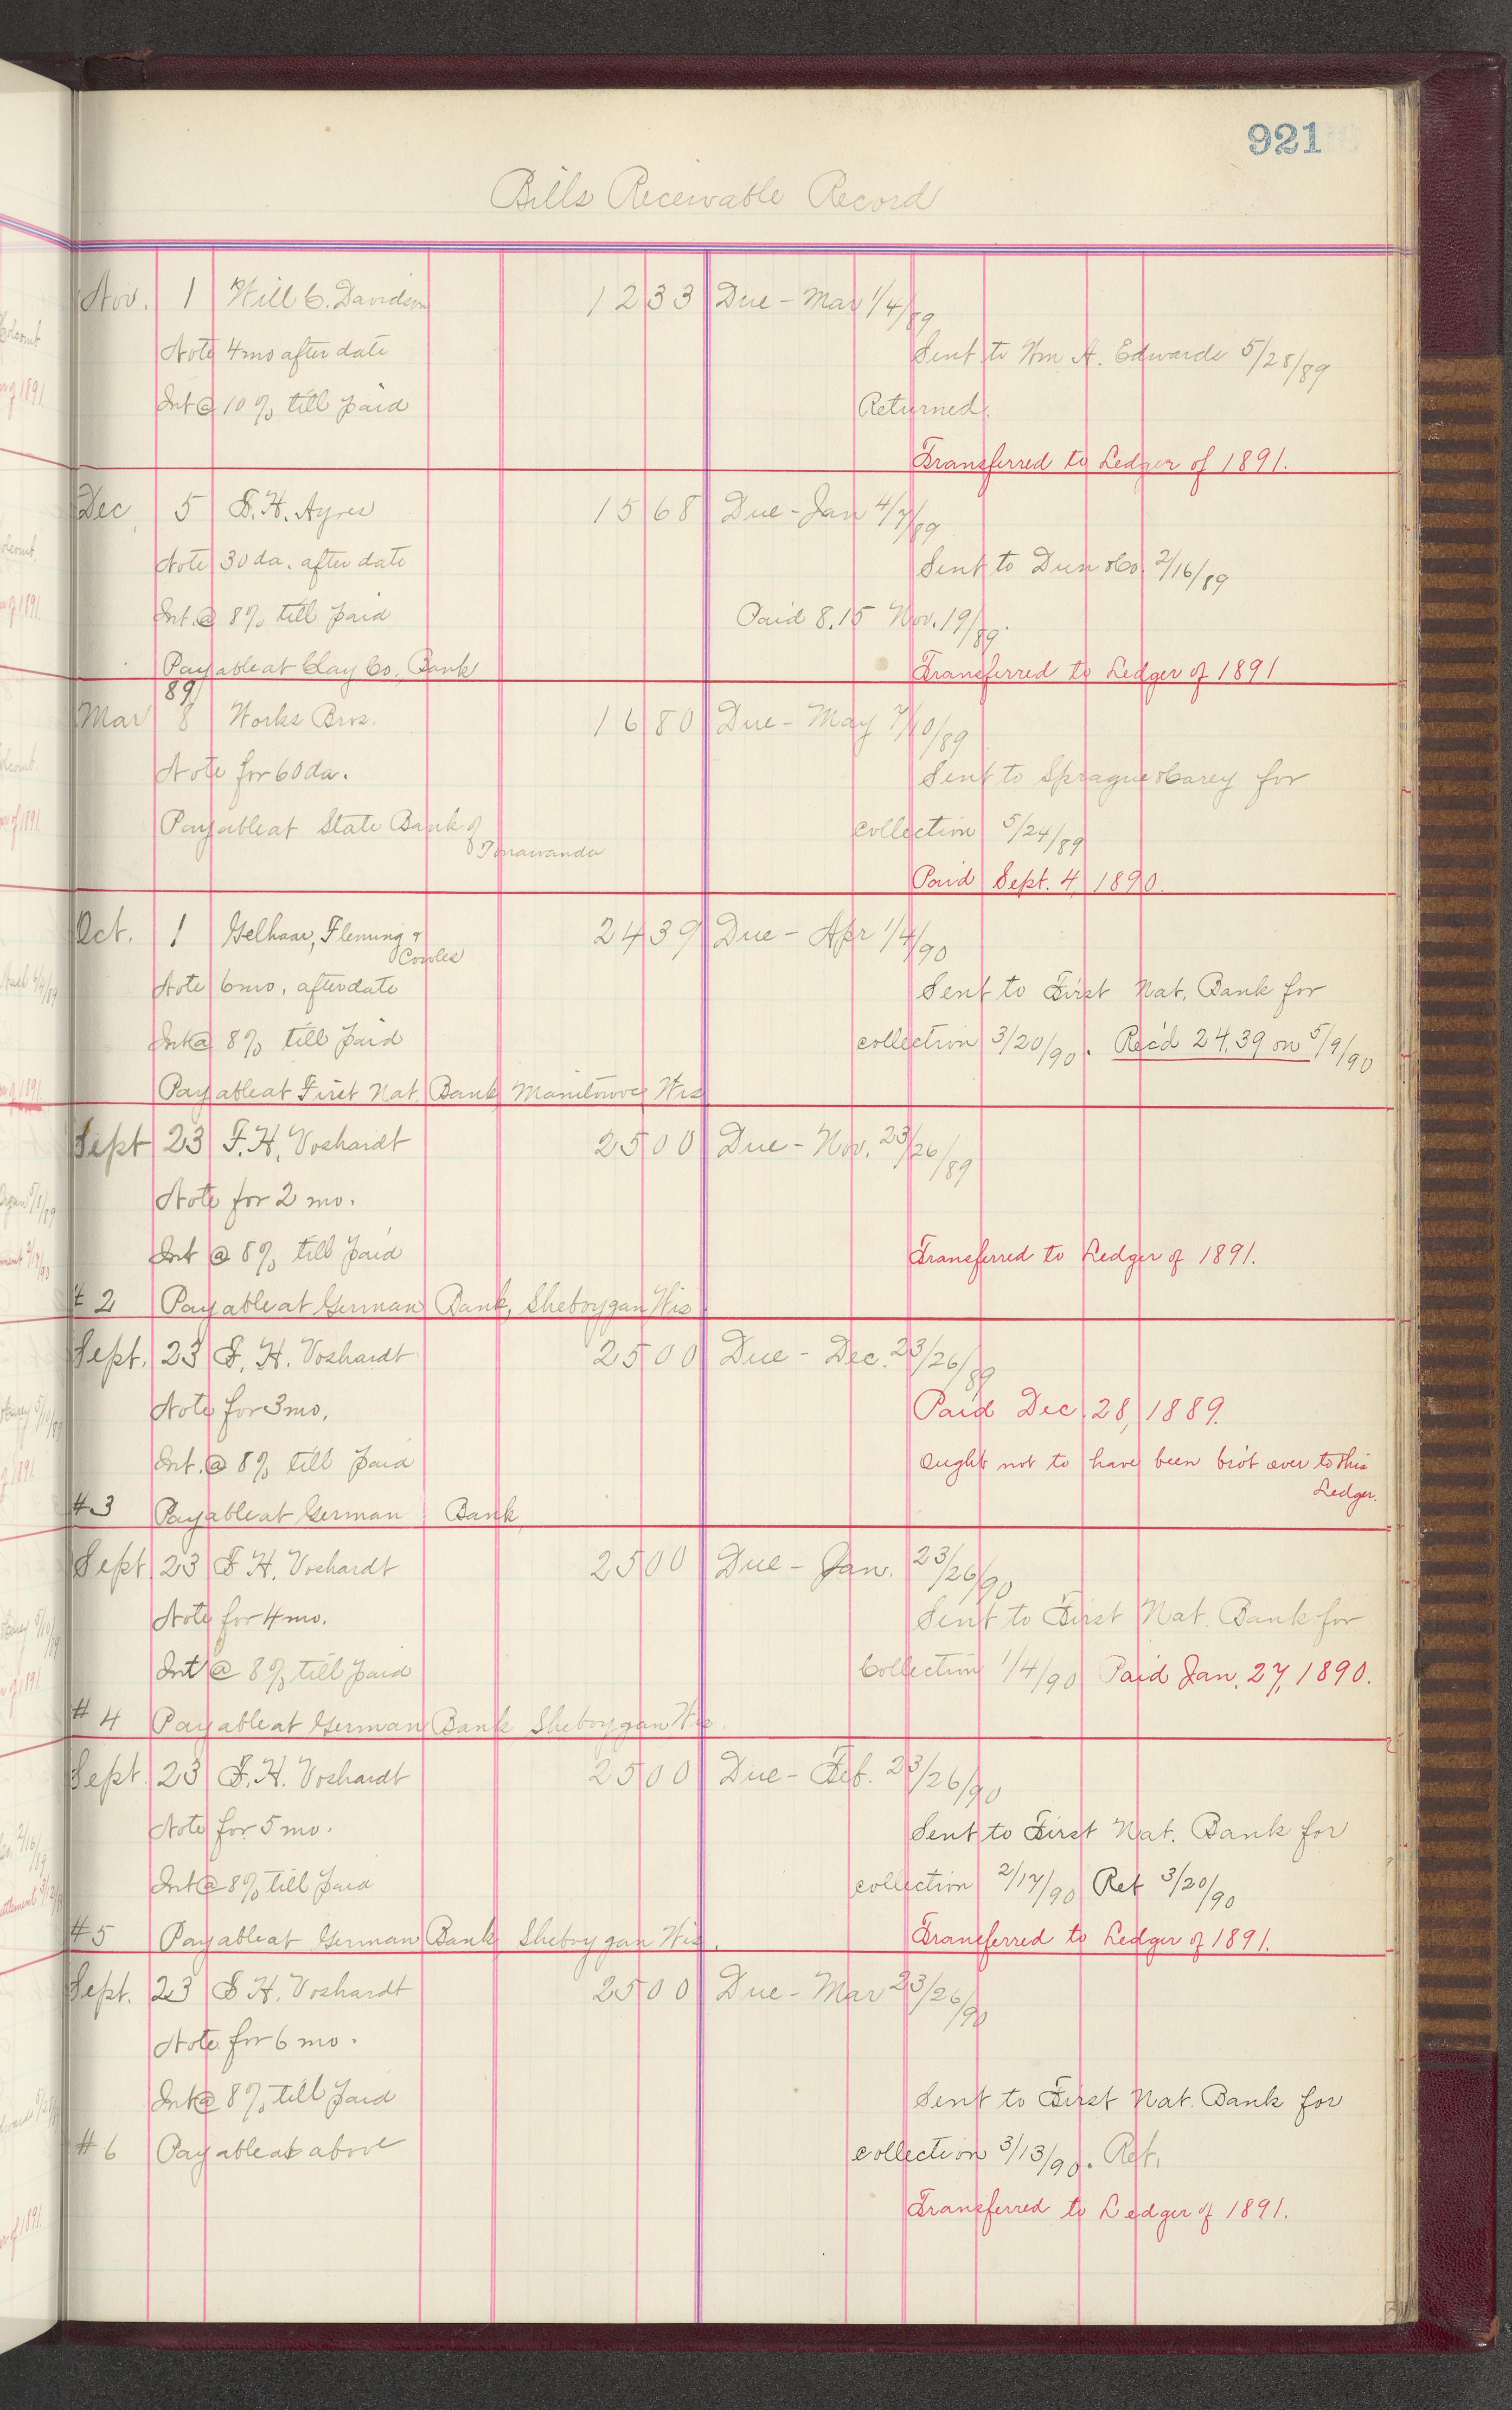 921
Bills Receivable Record
Nov. 1 Will C. Davidson 12 33 Due - Mar 1/4/89
Note 4mo after date Sent to Wm A. Edwards 5/28/89
Int @ 10% till paid Returned.
Transferred to Ledger of 1891.
Dec 5 S. H. Ayres 15 68 Due - Jan 4/7/89
Note 30 da. after date Sent to Dun & Co. 2/16/89
Int. @ 8% till paid Paid 8.15 Nov. 19/89.
Payable at Clay Co. Bank Transferred to Ledger of 1891
89
Mar 8 Works Bros. 16 80 Due - May 7/10/89
Note for 60 da. Sent to Sprague & Carey for
Payable at State Bank of collection 5/24/89
Tonawanda
Paid Sept. 4, 1890.
Oct. 1 Gelhaar, Fleming & 24 39 Due - Apr 1/4/90
Cowles
Note 6mo. after date Sent to First Nat. Bank for
Int @ 8% till paid collection 3/20/90. Rec'd 24.39 on 5/9/90
Payable at First Nat Bank Manitowoc Wis
Sept 23 F. H. Voshardt 25 00 Due - Nov. 23/26/89
Note for 2 mo.
Int @ 8% till paid Transferred to Ledger of 1891.
# 2 Payable at German Bank, Sheboygan Wis
Sept. 23 F. H. Voshardt 25 00 Due - Dec. 23/26/89
Note for 3mo. Paid Dec. 28, 1889.
Int. @ 8% till paid ought not to have been bro't over to this
Ledger.
#3 Payable at German Bank
Sept 23 F H. Voshardt 25 00 Due - Jan. 23/26/90
Note for 4mo. Sent to First Nat. Bank for
Int @ 8% till paid Collection 1/4/90 Paid Jan. 27, 1890.
# 4 Payable at German Bank Sheboygan Wis.
Sept. 23 F. H. Voshardt 25 00 Due - Feb. 23/26/90
Note for 5 mo. Sent to First Nat. Bank for
Int @ 8% till paid collection 2/17/90 Ret 3/20/90
#5 Payable at German Bank Sheboygan Wis. Transferred to Ledger of 1891.
Sept. 23 F H. Voshardt 25 00 Due - Mar 23/26/90
Note for 6 mo.
Int @ 8% till paid Sent to First Nat. Bank for
# 6 Payable at above collection 3/13/90. Ret.
Transferred to Ledger of 1891.